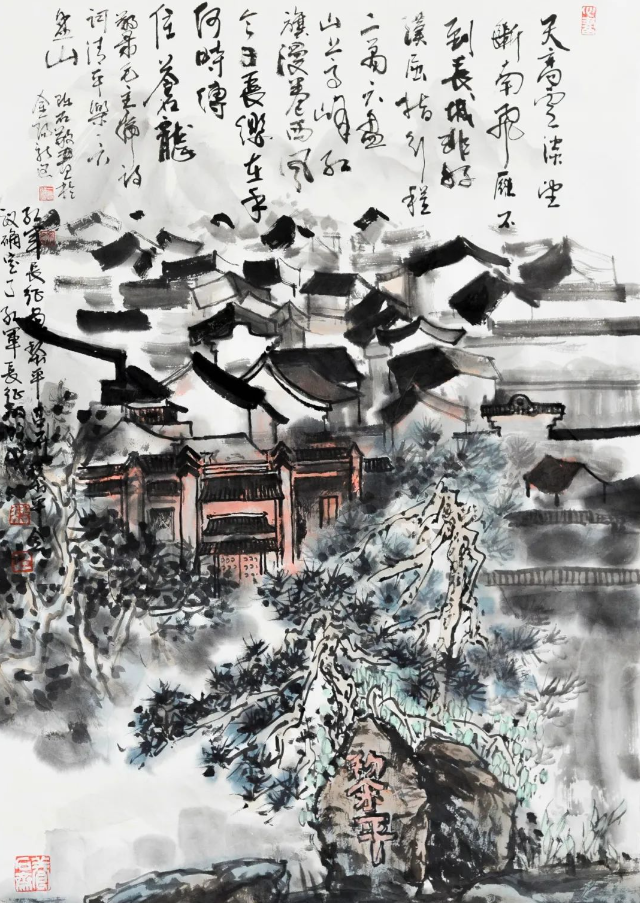 天高雲淡望
斷南飛雁不
到長城非好
漢屈指行程
二萬六盘
山上高峰紅
旗漫卷西風
今日長纓在手
何時縛
住蒼龍
敬录毛主席詩
詞清平樂六
盘山
敬画於
金陵
紅軍長征黎平
议确定了紅軍長征
黎平